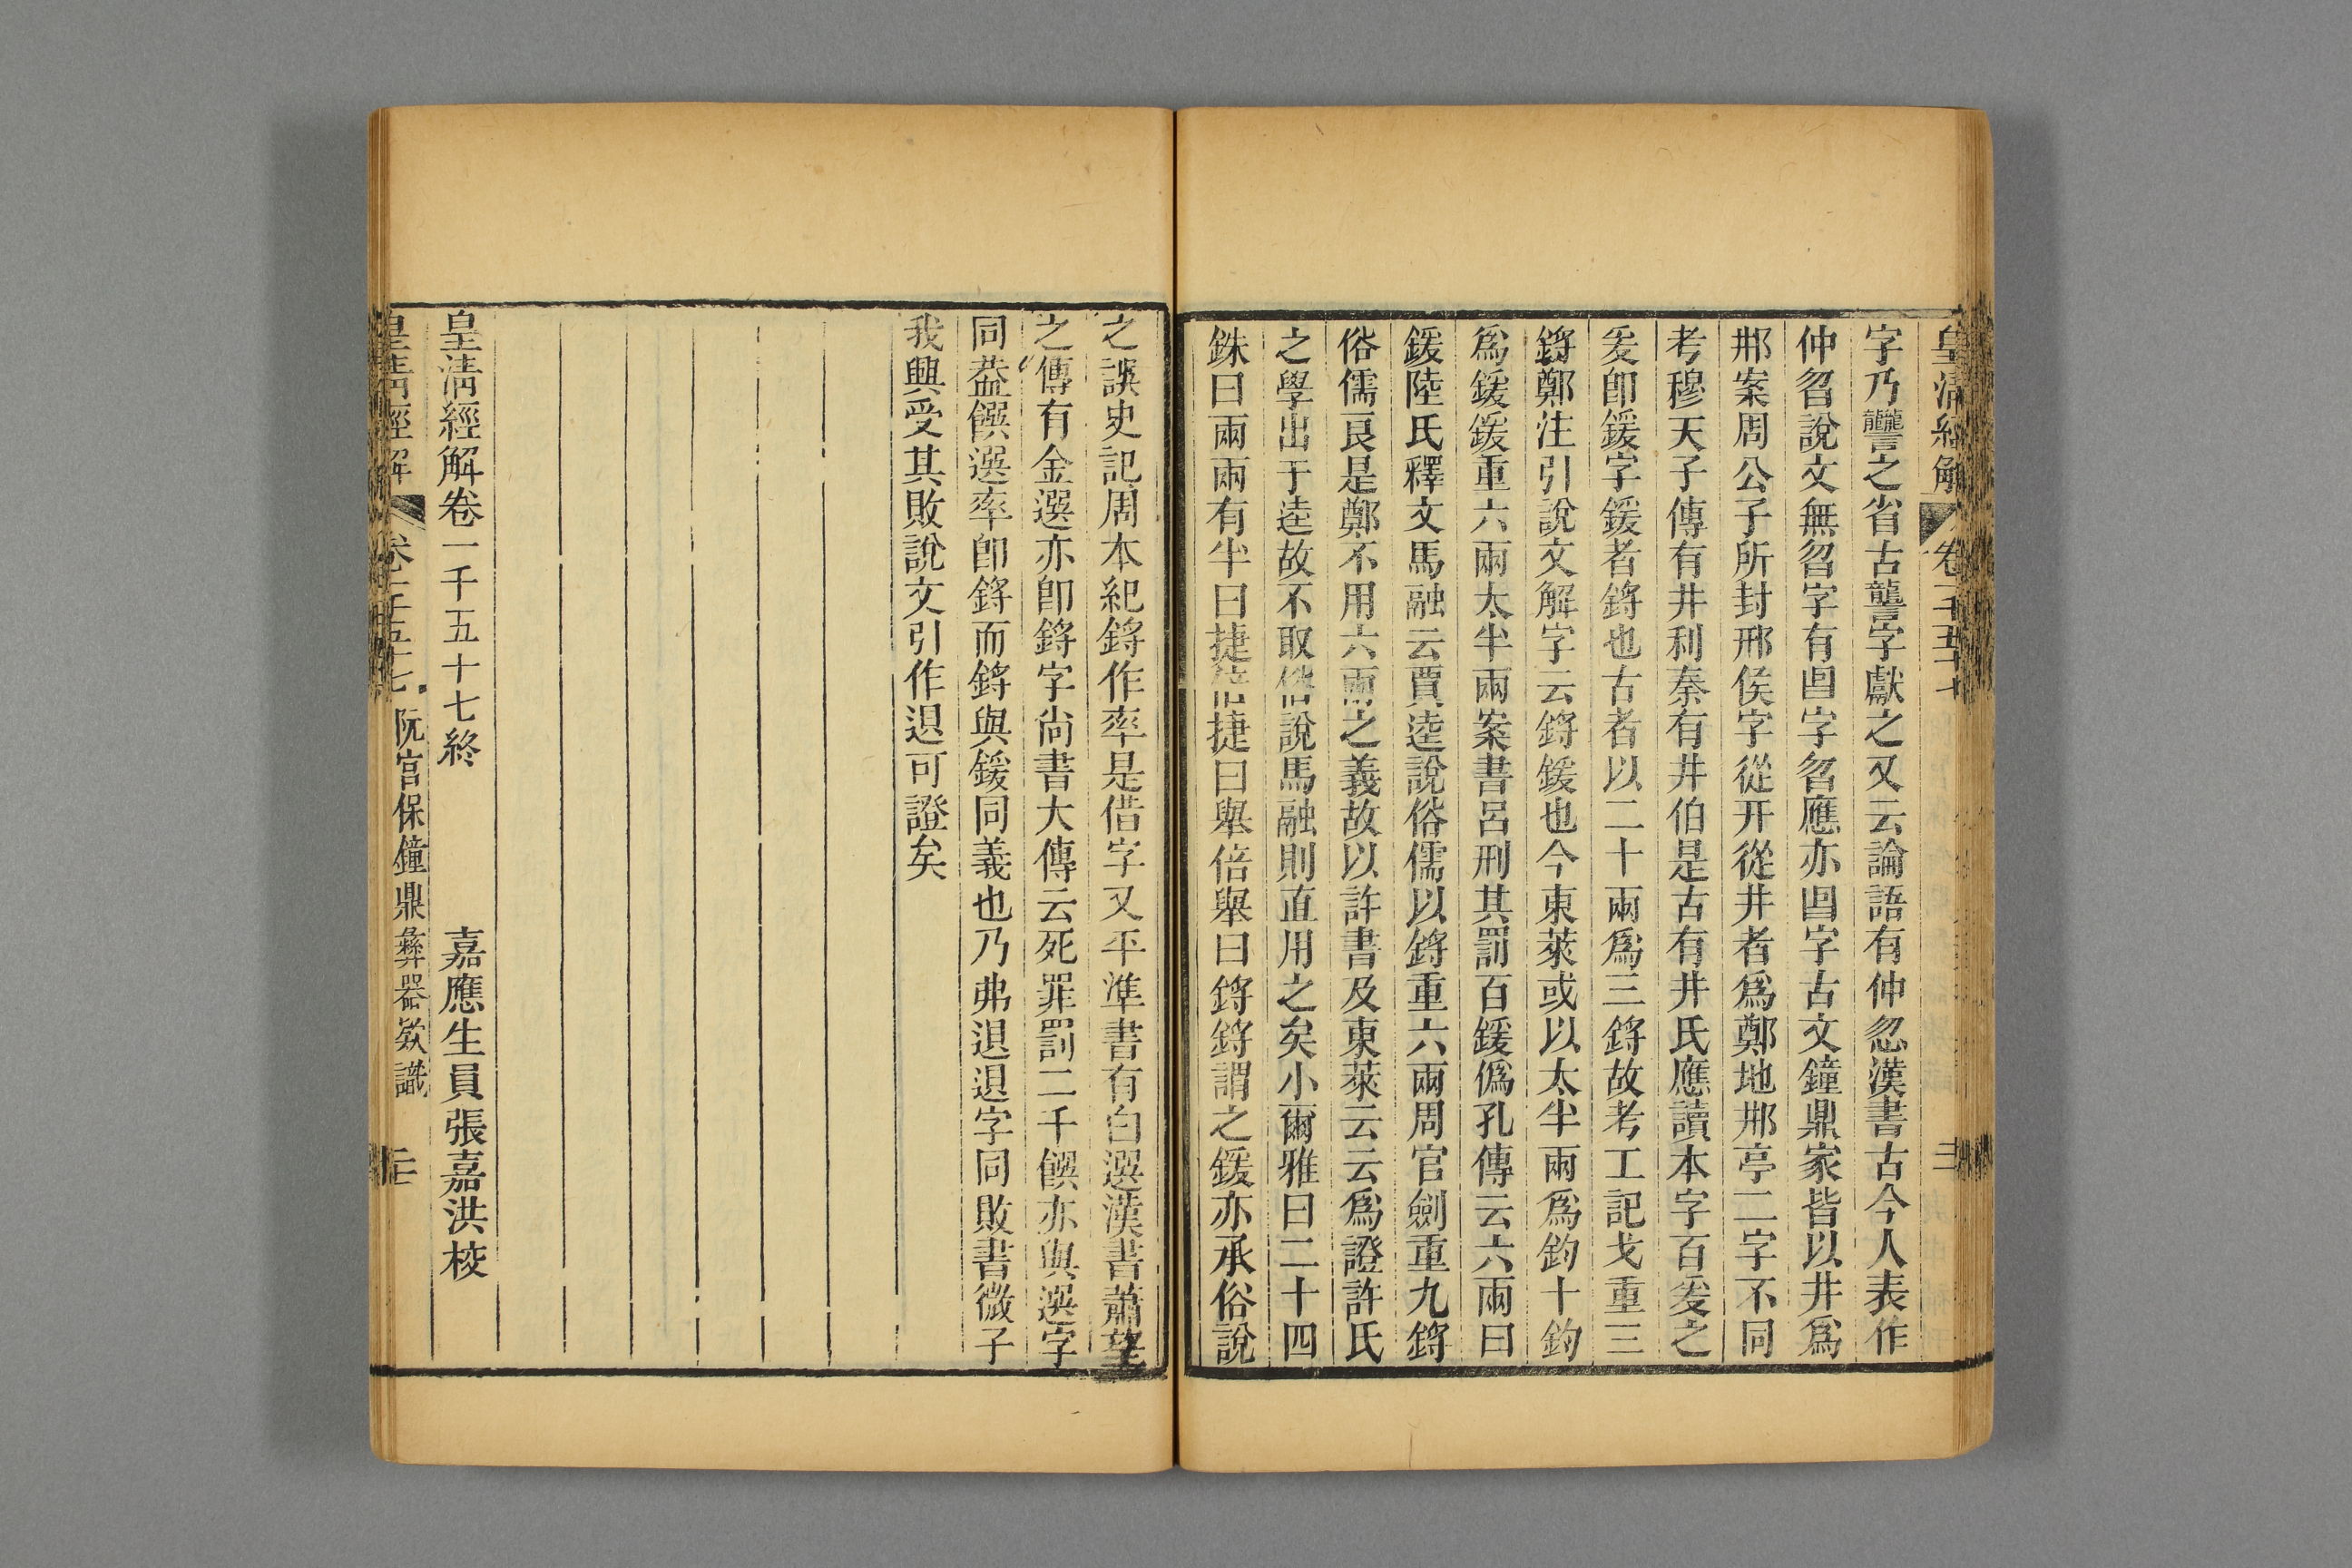 皇清經解 卷一千五十七 三
字乃讋之省古讋字獻之又云論語有仲忽漢書古今人表作
仲曶說文無曶字有㫚字曶應亦㫚字古文鐘鼎家皆以井爲
邢案周公子所封邢侯字從幵從井者爲鄭地邢亭二字不同
考穆天子傳有井利秦有井伯是古有井氏應讀本字百爰之
爰卽鍰字鍰者鋝也古者以二十兩爲三鋝故考工記戈重三
鋝鄭注引說文解字云鋝鍰也今東萊或以太半兩爲鈞十鈞
爲鍰鍰重六兩太半兩案書呂刑其罰百鍰僞孔傳云六兩曰
鍰陸氏釋文馬融云賈逵說俗儒以鋝重六兩周官劍重九鋝
俗儒良是鄭不用六兩之義故以許書及東萊云云爲證許氏
之學出于逵故不取俗說馬融則直用之矣小爾雅曰二十四
銖曰兩兩有半曰捷倍捷曰舉倍舉曰鋝鋝謂之鍰亦承俗說
之誤史記周本紀鋝作率是借字又平準書有白選漢書蕭望
之傳有金選亦卽鋝字尚書大傳云死罪罰二千饌亦與選字
同葢饌選率卽鋝而鋝與鍰同義也乃弗退退字同敗書微子
我興受其敗說文引作退可證矣
皇清經解卷一千五十七終 嘉應生員張嘉洪校
皇清經解 卷一千五十七 阮宮保鐘鼎彝器款識 三